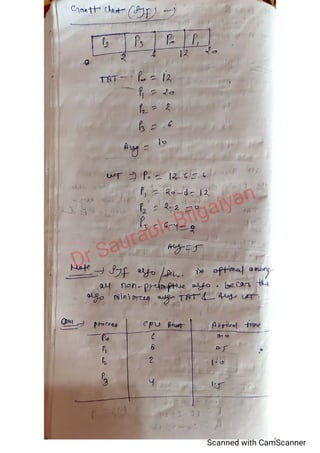 Gantt Chart (SJF) →
P2 P3 P0 P1
0 2 6 12 20
TAT — P0 = 12
P1 = 20
P2 = 2
P3 = 6
Avg = 10
WT → P0 = 12-6 = 6
P1 = 20-8 = 12
P2 = 2-2 = 0
P3 = 6-4 = 2
Avg = 5
Dr Saurabh Bilgaiyan
Note → SJF algo is optimal among
all non-preemptive algo. becaus this
algo minimizes avg TAT & Avg WT
Process CPU Burst Arrival time
P0 6 0.0
P1 8 0.5
P2 2 1.0
P3 4 1.5
Scanned with CamScanner